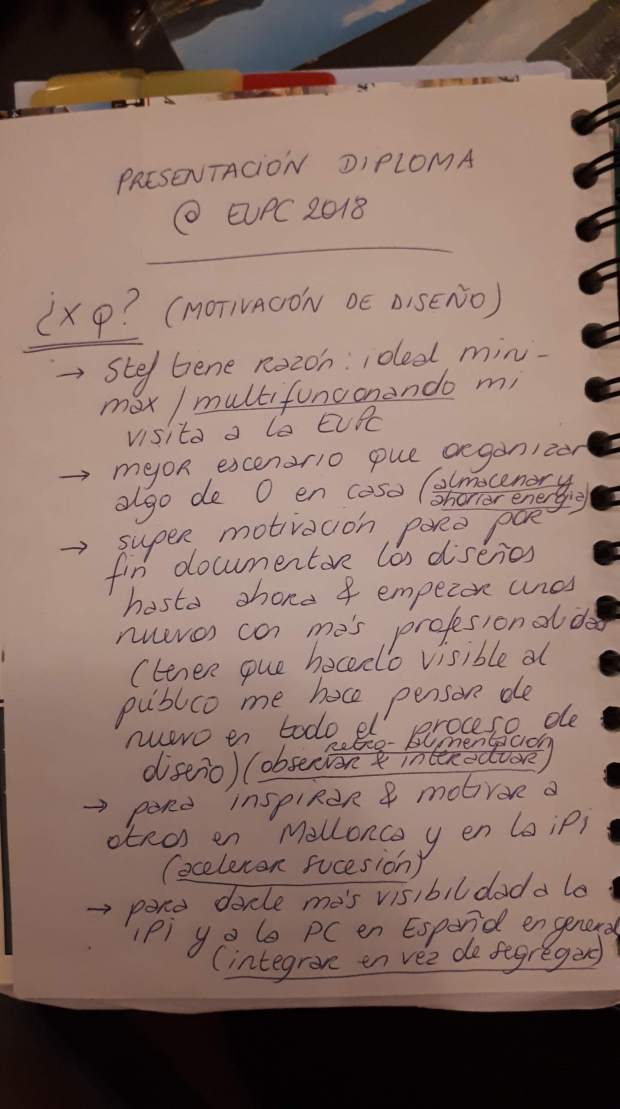 PRESENTACIÓN DIPLOMA
@ EUPC 2018
¿X Q? (MOTIVACIÓN DE DISEÑO)
→ Stef tiene razón: ideal mini-
max / multifuncionando mi
visita a la EUPC
→ mejor escenario que organizar
algo de 0 en casa (almacenar y
ahorrar energía)
→ super motivación para por
fin documentar los diseños
hasta ahora & empezar unos
nuevos con más profesionalidad
(tener que hacerlo visible al
público me hace pensar de
nuevo en todo el proceso de
retro-alimentación
diseño) (observar & interactuar)
→ para inspirar & motivar a
otros en Mallorca y en la iPi
(acelerar sucesión)
→ para darle más visibilidad a la
iPi y a la PC en Español en general
(integrar en vez de segregar)